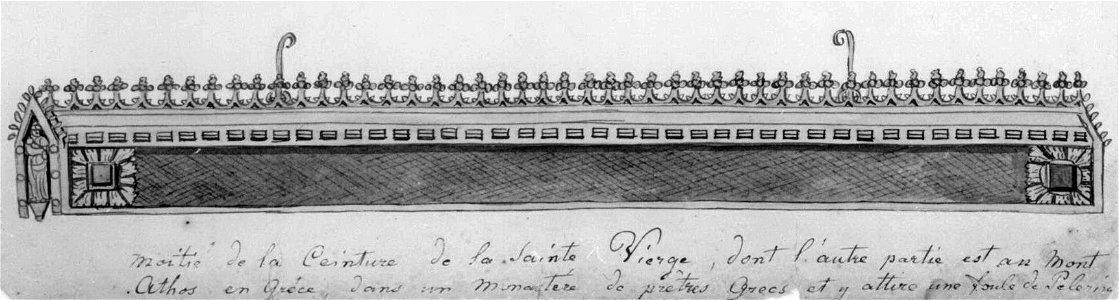 moitié de la Ceinture de la Sainte Vierge, dont l'autre partie est au Mont
Athos en Gréce, dans un monastére de prêtres Grecs et y attire une foule de Pelerins